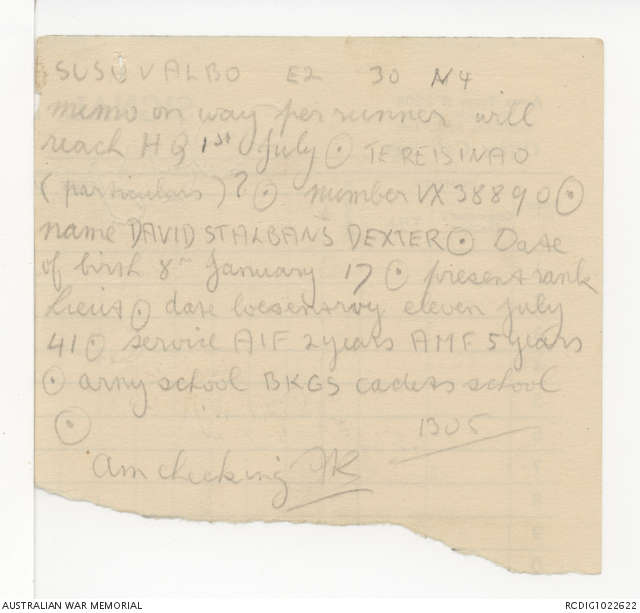 SUSU VALBO E2 30 N4
memo on way per runner will
reach HQ 1st July ⊙ TEREISINAO
(particulars)? ⊙ number VX38890 ⊙
name DAVID ST ALBANS DEXTER ⊙ Date
of birth 8th January 17 ⊙ present rank
Lieut ⊙ date eleven July
41 ⊙ service AIF 2 years AMF 5 years
⊙ army school BKGS cadets school
⊙ 1305
Am checking
AUSTRALIAN WAR MEMORIAL RCDIG1022622